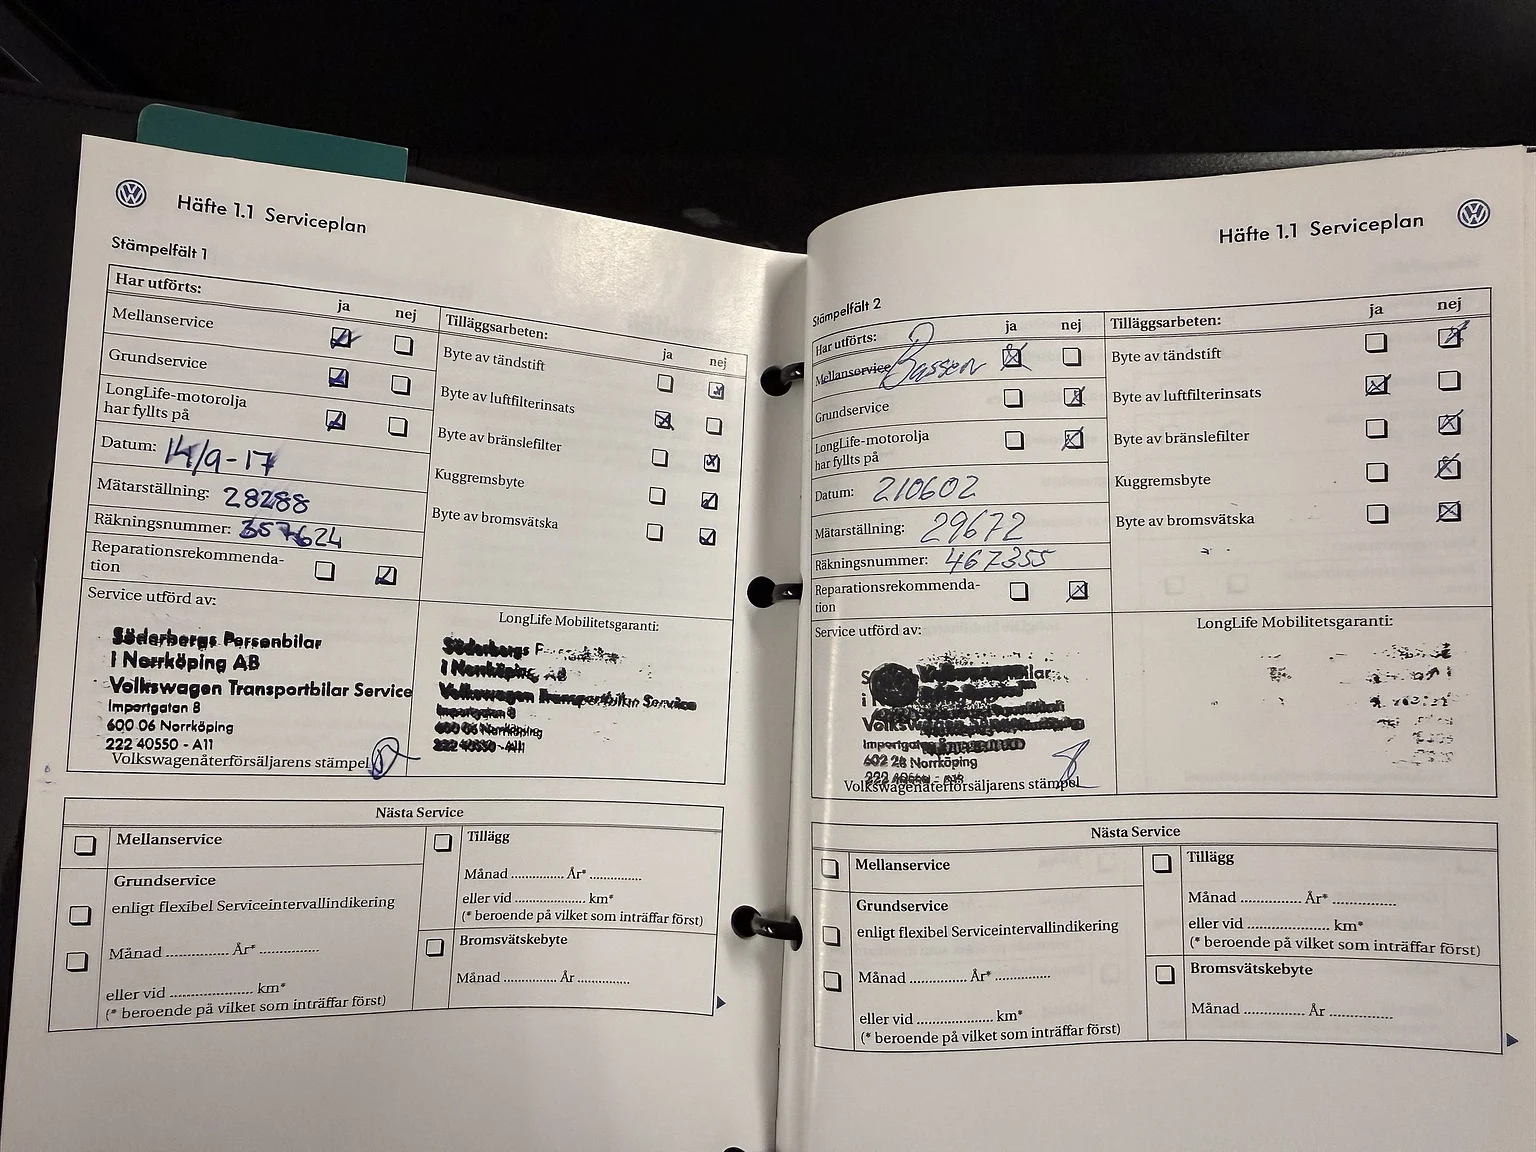 Häfte 1.1 Serviceplan
Stämpelfält 1
Har utförts:
ja nej
Mellanservice
Grundservice
LongLife-motorolja
har fyllts på
Datum: 14/9-17
Mätarställning: 28288
Räkningsnummer: 357624
Reparationsrekommenda-
tion
Tilläggsarbeten:
ja nej
Byte av tändstift
Byte av luftfilterinsats
Byte av bränslefilter
Kuggremsbyte
Byte av bromsvätska
Service utförd av:
Söderbergs Personbilar
i Norrköping AB
Volkswagen Transportbilar Service
Importgatan 8
600 06 Norrköping
222 40550 - A11
Volkswagenåterförsäljarens stämpel
LongLife Mobilitetsgaranti:
Söderbergs
i Norrköping AB
Volkswagen Transportbilar Service
Importgatan 8
600 06 Norrköping
222 40550 - A11
Nästa Service
Mellanservice
Grundservice
enligt flexibel Serviceintervallindikering
Månad .............. År* .............
eller vid .................. km*
(* beroende på vilket som inträffar först)
Tillägg
Månad ............. År* .............
eller vid ..................... km*
(* beroende på vilket som inträffar först)
Bromsvätskebyte
Månad ............. År .............
Häfte 1.1 Serviceplan
Stämpelfält 2
Har utförts:
ja nej
Mellanservice
Grundservice
LongLife-motorolja
har fyllts på
Datum: 210602
Mätarställning: 29672
Räkningsnummer: 467355
Reparationsrekommenda-
tion
Tilläggsarbeten:
ja nej
Byte av tändstift
Byte av luftfilterinsats
Byte av bränslefilter
Kuggremsbyte
Byte av bromsvätska
Service utförd av:
602 28 Norrköping
Volkswagenåterförsäljarens stämpel
LongLife Mobilitetsgaranti:
Nästa Service
Mellanservice
Grundservice
enligt flexibel Serviceintervallindikering
Månad .............. År* .............
eller vid .................. km*
(* beroende på vilket som inträffar först)
Tillägg
Månad .............. År* .............
eller vid ..................... km*
(* beroende på vilket som inträffar först)
Bromsvätskebyte
Månad .............. År .............